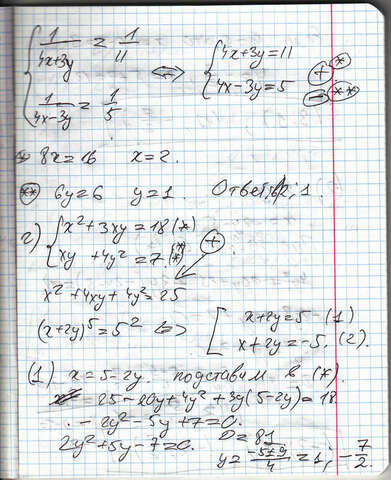 { 1/(4x+3y) = 1/11 <=> { 4x+3y=11 (+) *
{ 1/(4x-3y) = 1/5 { 4x-3y=5 (-) **
* 8x=16 x=2.
** 6y=6 y=1. Ответ: 2; 1.
2) { x²+3xy=18 (*)
{ xy +4y²=7. (**) (+)
x²+4xy+4y²=25
(x+2y)⁵=5² <=> [ x+2y=5 - (1)
[ x+2y=-5. (2).
(1) x=5-2y. подставим в (*).
25-20y+4y²+3y(5-2y)=18
-2y²-5y+7=0.
2y²+5y-7=0. D=81
y=(-5±9)/4=1; -7/2.